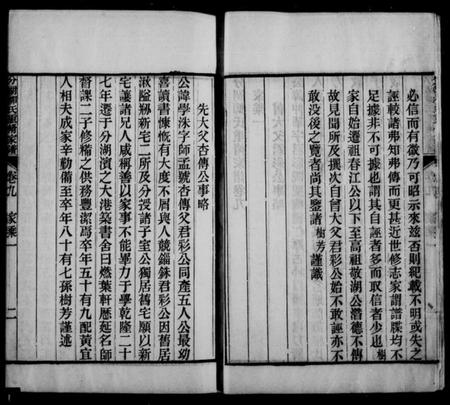 必信而有徵乃可昭示來茲否則紀載不明或失之
誣較諸弗知弗傳而更甚近世修志家謂譜牒均不
足據非不可據也謂其自誣者多而取信者少也樹芳
家自始遷祖春江公以下至高祖敬湖公潛德不傳
故見聞所及撰次自曾大父君彩公始不敢誣亦不
敢没後之覽者尚其鑒諸樹芳謹識
先大父杏傳公事略
公諱學洙字師孟號杏傳父君彩公同產五人公最幼
喜讀書慷慨有大度不屑與人競錙銖君彩公因舊居
湫隘剏新宅二所及分授諸子室公獨居舊宅願以新
宅讓諸兄人咸稱善以家事不能畢力于學乾隆二十
七年遷于分湖濱之大港築書舍曰燃葉軒歷延名師
督課二子修糈之供務豐潔焉卒年五十有九配黃宜
人相夫成家辛勤備至卒年八十有七孫樹芳謹述
卷九
家乘
二